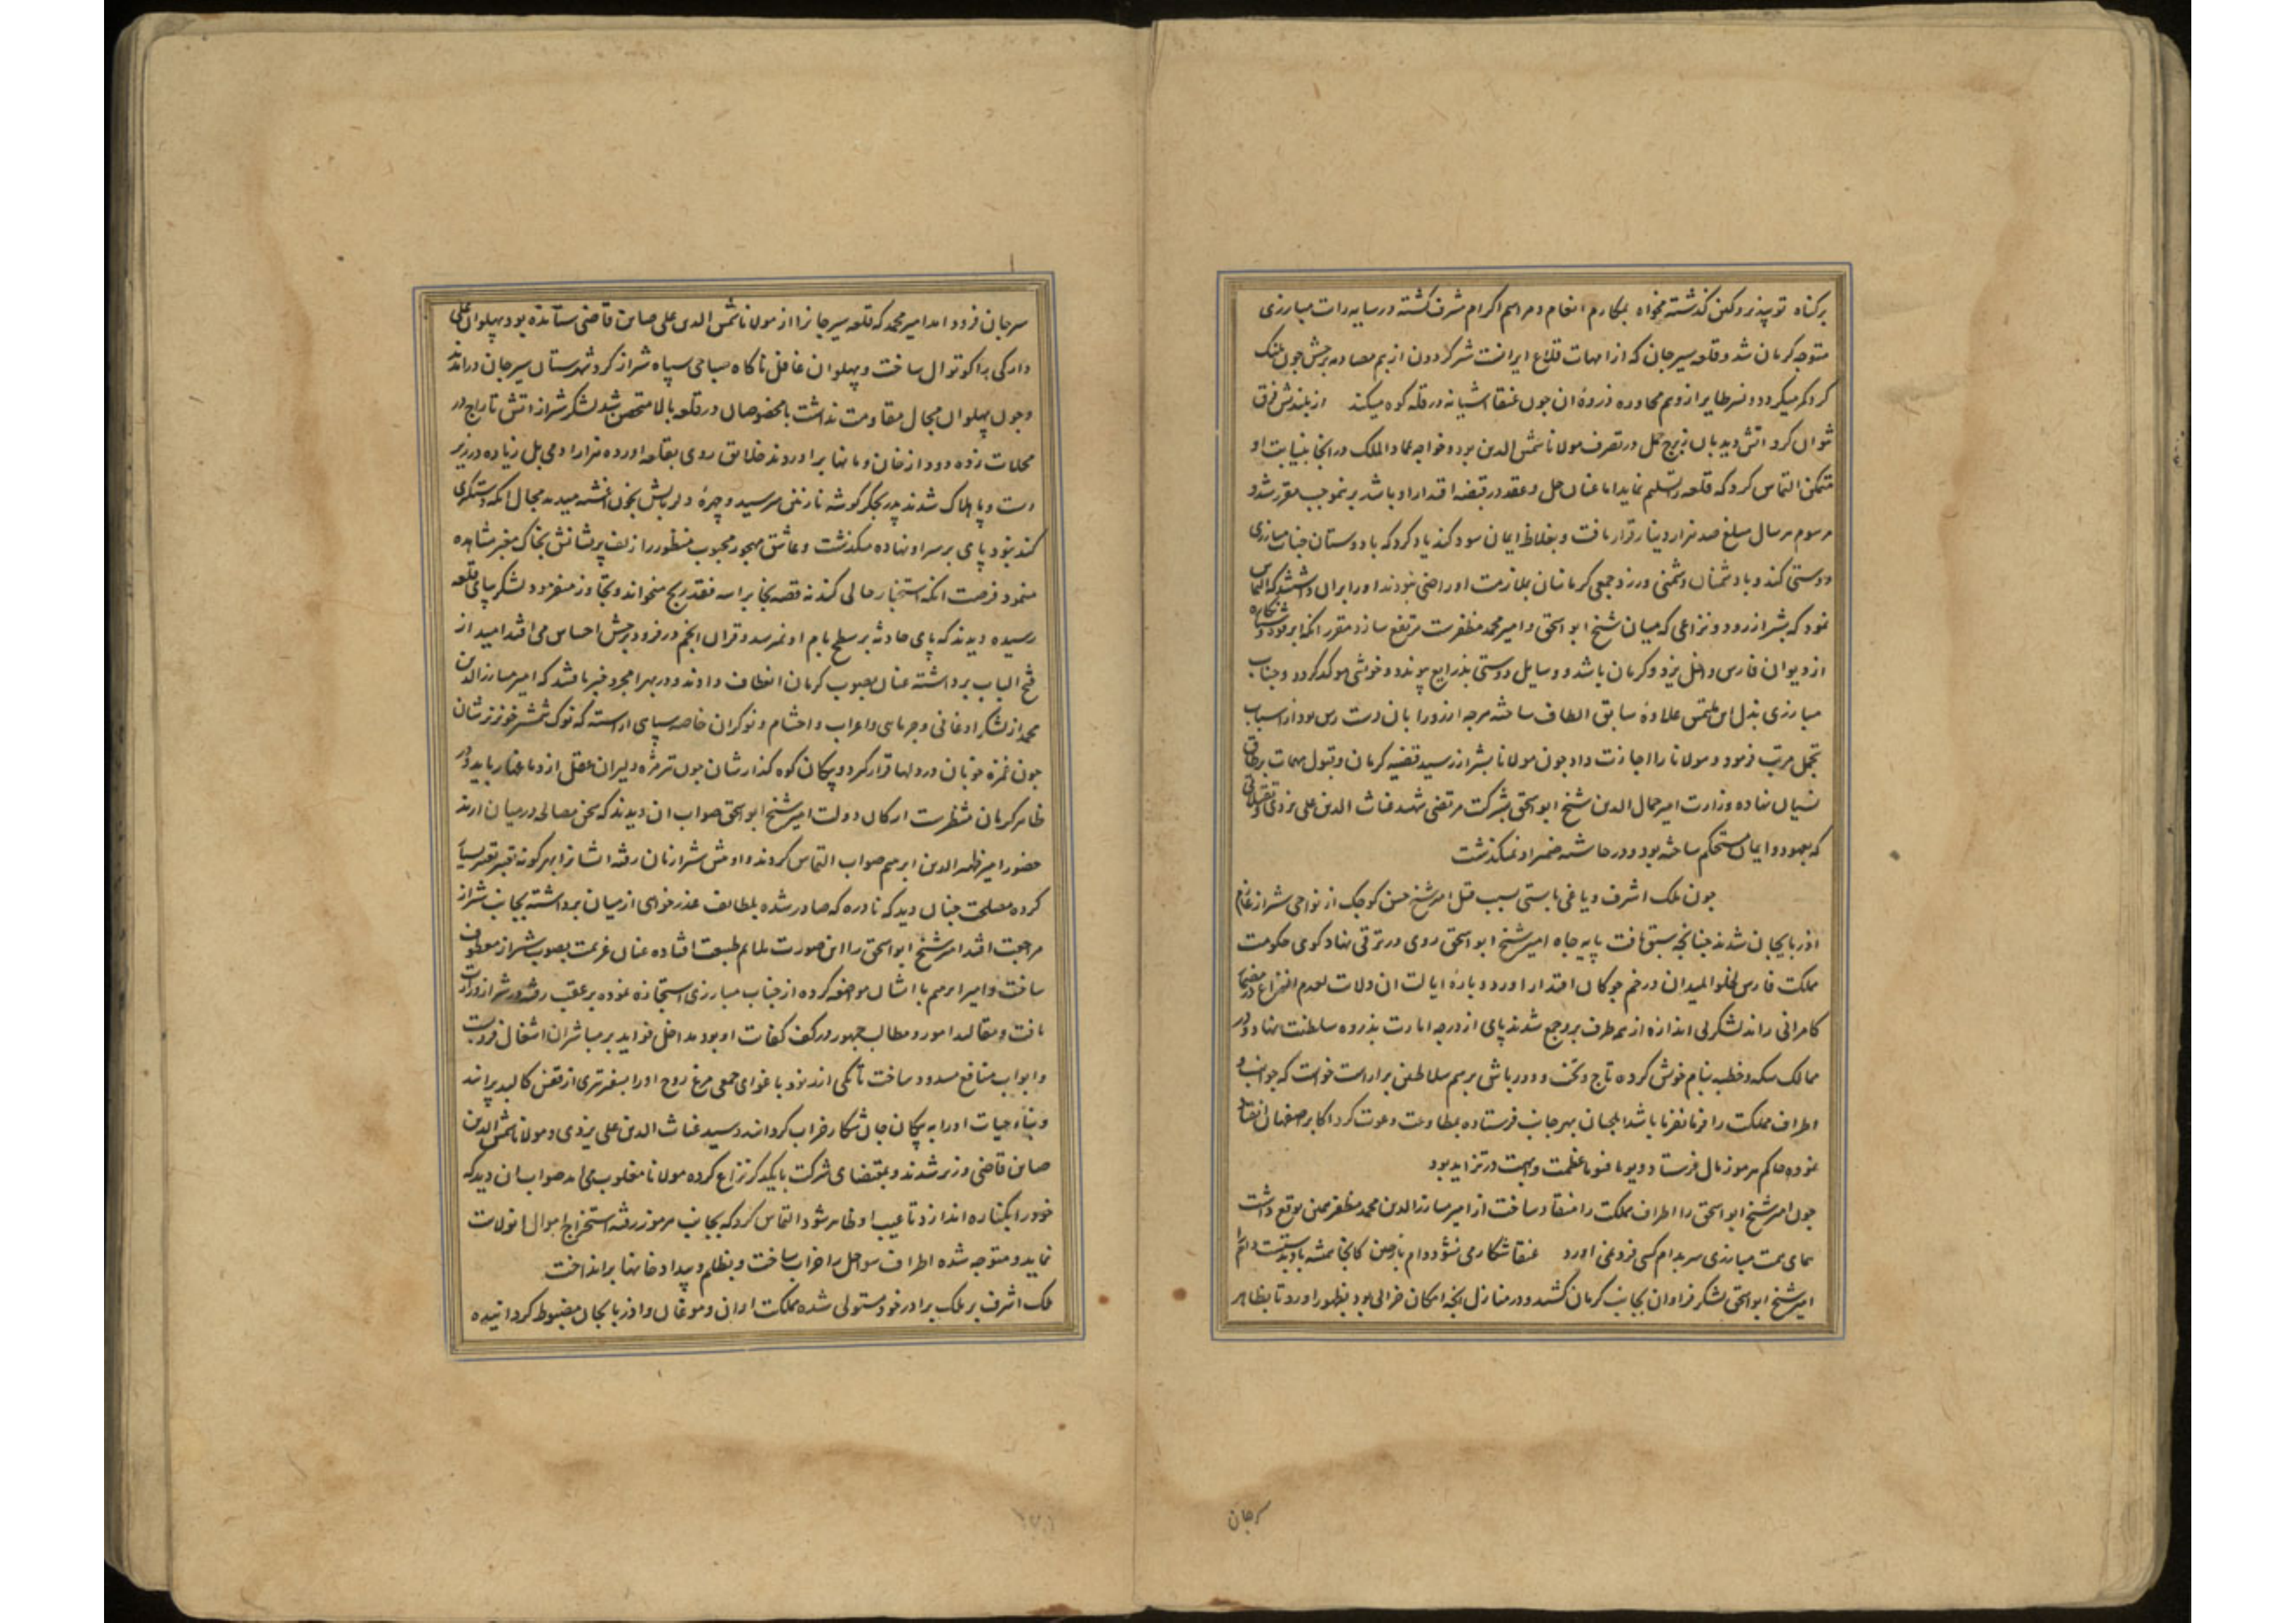 برکناه توپیذیرد وکین کذشته نخواه بمکارم انعام ومراسم اکرام مشرف کشته در سایه رات مبارزی
متوجه کرمان شد وقلعه سیرجان که از امهات قلاع ایرانست شیر کردون از بیم مصادمه برجش چون پلنک
کرد کمر میکردد ونسر طایر از وهم محاوره ذروهٔ ان چون عنقا اشیانه در قله کوه میکند از بلندیش فرق
نتوان کرد اتش دیدبان ز برج حل در تصرف مولانا شمس الدین بود وخواجه عماد الملک در انجا بنیابت او
متمکن التماس کرد که قلعه تسلیم نماید اما عنان حل وعقد در قبضه اقتدار او باشد برینموجب مقرر شد و
مرسوم هر سال مبلغ صد هزار دینار قرار یافت وبغلاظ ایمان سوکند یاد کرد که با دوستان جناب مبارزی
دوستی کند وبا دشمنان دشمنی ورزد جمعی کرمانیان بملازمت او راضی نبودند او را بران داشتند که التماس
نمود که بشیراز رود ونزاعی که میان شیخ ابو اسحق وامیر محمد مظفرست مرتفع سازد مقرر انکه ابرقوه وشبانکاره
از دیوان فارس داخل یزد وکرمان باشد ووسایل دوستی بذرایع پیوند وخویشی موکد کردد وجناب
مبارزی بذل این ملتمس علاوهٔ سابق الطاف ساخته هرچه ارزو را بان دست رس بود از اسباب
تجمل مرتب فرمود ومولانا را اجازت داد چون مولانا بشیراز رسید قضیه کرمان وقبول مهمات بر طاق
نسیان نهاده وزارت امیر جمال الدین شیخ ابو اسحق بشرکت مرتضی شهید غیاث الدین علی یزدی
که بعهود وایمان مستحکم ساخته بود ودر حاشیه ضمیر او نمیکذشت
چون ملک اشرف ویاغی باستی بسبب قتل امیر شیخ حسن کوچک از نواحی شیراز عازم
اذربایجان شدند چنانچه سبق یافت پایه جاه امیر شیخ ابو اسحق روی در ترقی نهاد کوی حکومت
مملکت فارس لخلو المیدان در خم چوکان اقتدار اورد ودبارهٔ ایالت ان ولات لعدم النزاع در مضمار
کامرانی راند لشکر بی اندازه از هر طرف برو جمع شدند پای از درجه امارت بذروه سلطنت نهاد ودر
ممالک سکه وخطبه بنام خویش کرده تاج وتخت ودورباش برسم سلاطین براراست خواست که جوانب و
اطراف مملکت را فرمانفرما باشد ایلچیان بهر جانب فرستاده بمطاوعت دعوت کرد اکابر اصفهان انقیاد
نموده حاکم هرموز مال فرستاد ویوما فیوما عظمت وابهت در تزاید بود
چون امیر شیخ ابو اسحق را اطراف مملکت را منقاد ساخت از امیر مبارز الدین محمد مظفر همین توقع داشت
همای همت مبارزی سر بدام کسی فرو نمی اورد عنقا شکار می نشود دام بازچین کانجا همیشه باد بدستست دام را
امیر شیخ ابو اسحق لشکر فراوان بجانب کرمان کشید ودر منازل انچه امکان خرابی بود بظهور اورد تا بظاهر
سرجان
سرجان فرود امد امیر محمد که قلعه سیرجانرا از مولانا شمس الدین علی صاین قاضی ستانده بود پهلوان علی
دارکی را کوتوال ساخت وپهلوان غافل ناکاه صباحی سپاه شیراز کرد شهرستان سیرجان درامدند
وچون پهلوان مجال مقاومت نداشت با مخصوصان در قلعه بالا متحصن شد لشکر شیراز اتش تاراج در
محلات زده دود از خان ومانها براوردند خلایق روی بقلعه اورده هزار ادمی بل زیاده در زیر
دست وپا هلاک شدند پدر بجکر کوشه نازنین میرسید وچهرهٔ دلربایش بخون اغشته میدید مجال انکه دستکیری
کند نبود پای بر سر او نهاده میکذشت وعاشق مهجور محبوب منظور را زلف پریشانش بخاک مغبر مشاهده
مینمود فرصت انکه استخبار حالی کند نه قصه یحابر اسه فقد ربح میخواند وتجاوز میفرمود لشکر بپای قلعه
رسیده دیدند که پای حادثه بر سطح بام او نمیرسد وقران انجم در فرود برجش احساس می افتد امید از
فتح الباب برداشته عنان بصوب کرمان انعطاف دادند ودر بهرامجرد خبر یافتند که امیر مبارز الدین
محمد از لشکر اوغانی وجرمایی واعراب واحشام ونوکران خاصه سپاهی اراسته که نوک شمشیر خونریزشان
چون غمزه خوبان در دلها قرار کیرد وپیکان کوه کذارشان چون تیر مژه دلبران عقل از دماغها رباید در
ظاهر کرمان منتظرست ارکان دولت امیر شیخ ابو اسحق صواب ان دیدند که سخن مصالحه در میان ارند
حضور امیر ظهیر الدین ابرهیم صواب التماس کردند واو پیش شیرازیان رفته ایشانرا بهر کونه
کرده مصلحت چنان دید که نادره که صادر شده بلطایف عذر خواهی از میان برداشته بجانب شیراز
مراجعت افتد امیر شیخ ابو اسحق را این صورت ملایم طبیعت افتاده عنان عزیمت بصوب شیراز معطوف
ساخت وامیر ابرهیم با ایشان مواضعه کرده از جناب مبارزی استجازه نموده بر عقب رفت ودر شیراز وزارت
یافت ومقالید امور ومطالب جمهور در کف کفایت او بود مداخل فواید بر مباشران اشغال فروبست
وابواب منافع مسدود ساخت تا یکی از نوکر باغوای جمعی مرغ روح او را بسفر تیری از قفس کالبد پرانید
وبناء حیات او را به پیکان جان شکار خراب کردانید وسید غیاث الدین علی یزدی ومولانا شمس الدین
صاین قاضی وزیر شدند وبمقتضای شرکت با یکدیکر نزاع کرده مولانا مغلوب می امد صواب ان دید که
خود را بکناره اندازد تا عیب او ظاهر شود التماس کرد که بجانب هرموز رفته استخراج اموال انولات
نماید ومتوجه شده اطراف سواحل را خراب ساخت وبظلم وبیداد خانها برانداخت
ملک اشرف بر ملک برادر خود مستولی شده مملکت اران وموغان واذربایجان مضبوط کردانیده